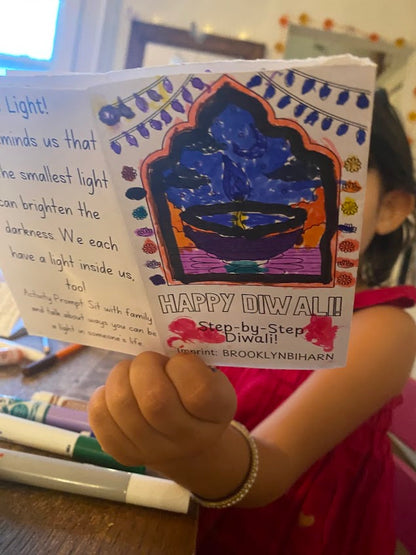 Light!
minds us that
he smallest light
can brighten the
darkness. We each
have a light inside us,
too!
Activity Prompt: Sit with family
and talk about ways you can be
a light in someone's life.
HAPPY DIWALI!
Step-by-Step
Diwali!
Imprint: BROOKLYNBIHARN